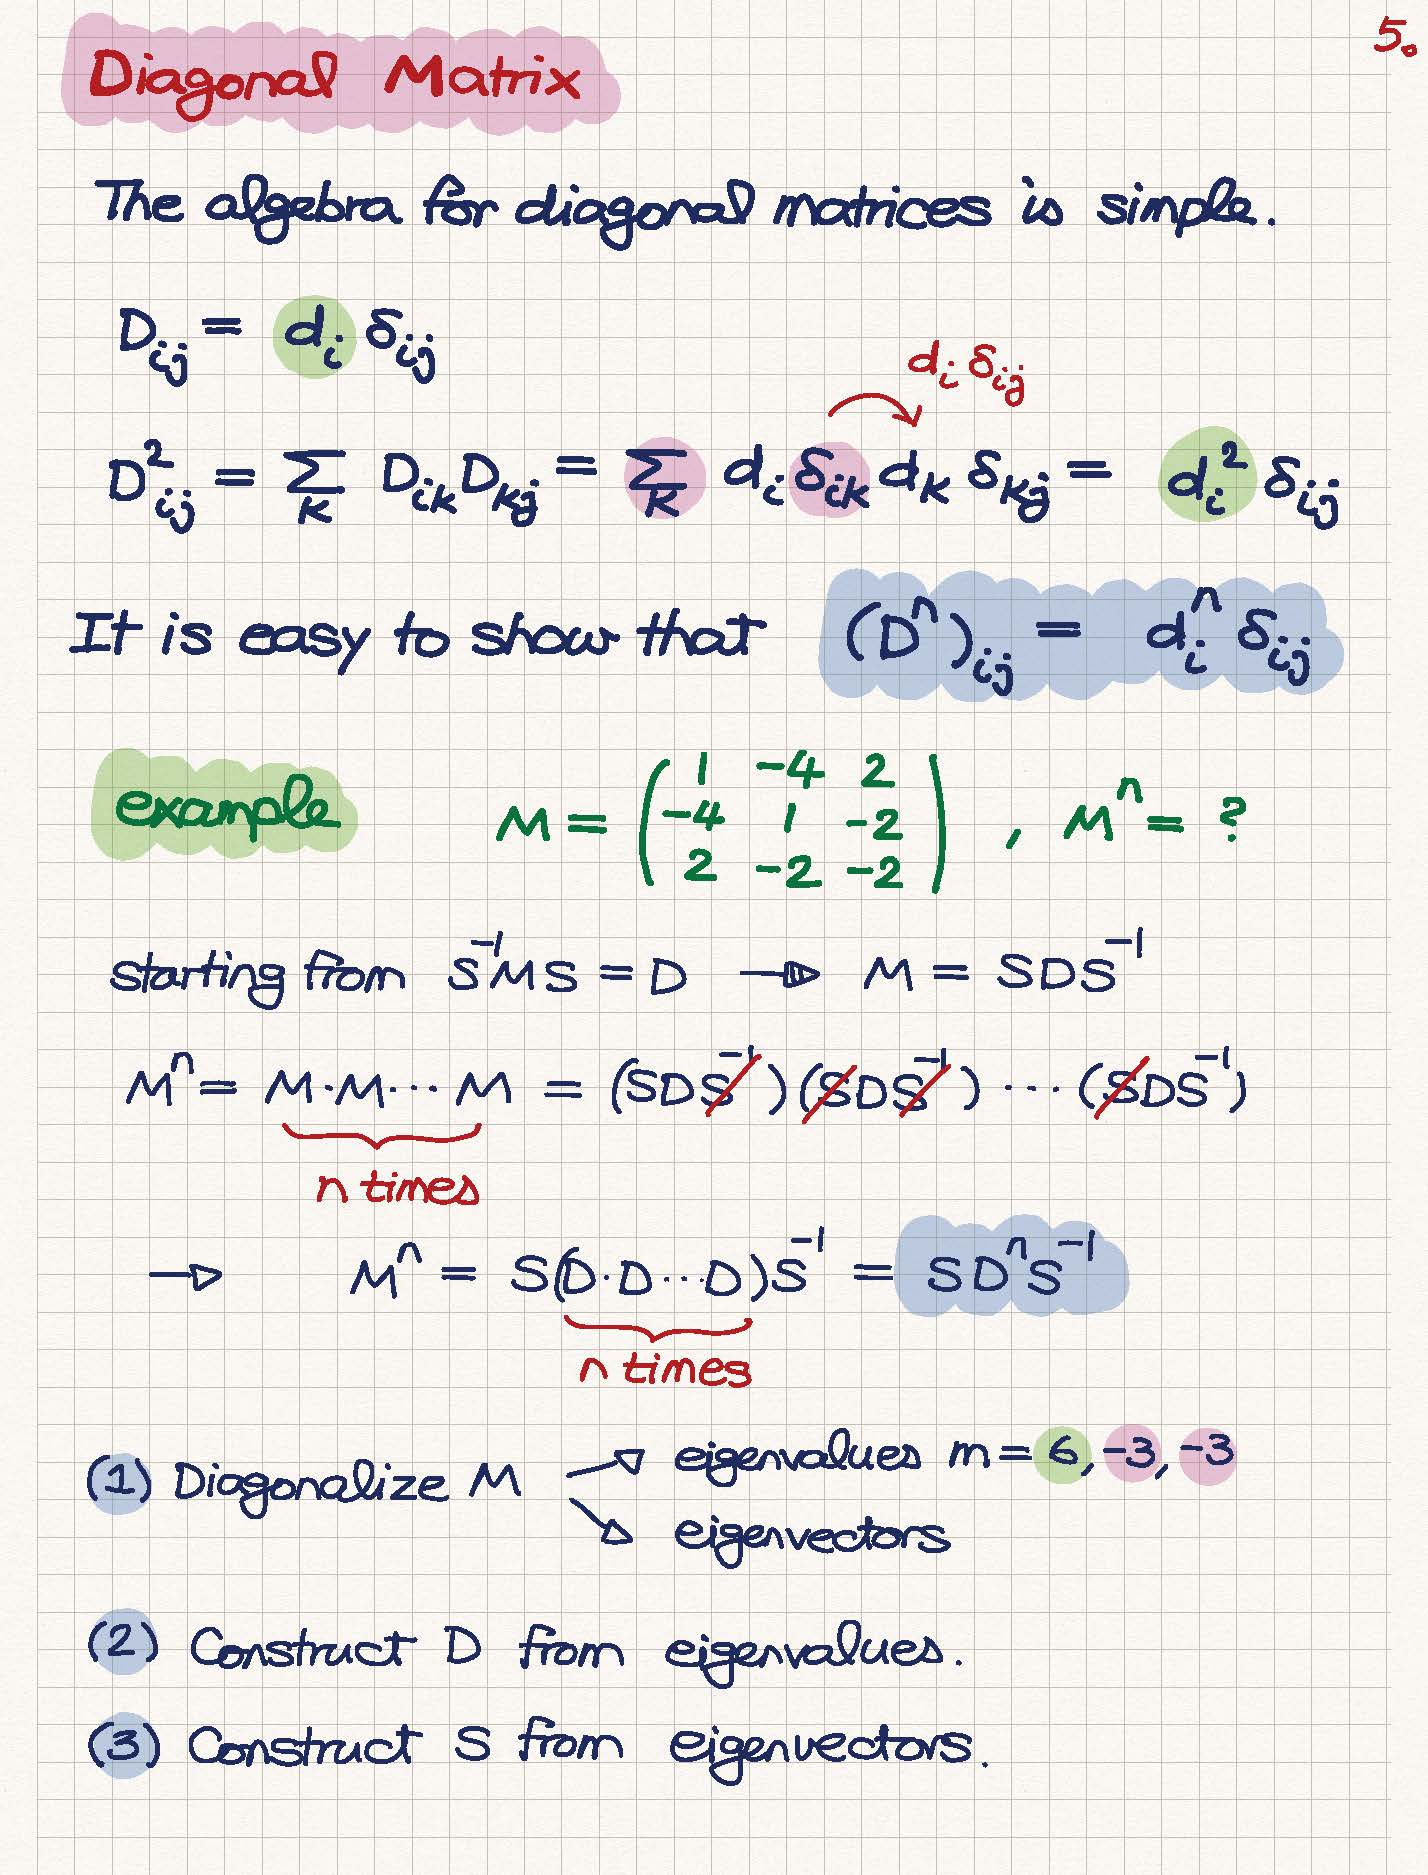 5.
Diagonal Matrix
The algebra for diagonal matrices is simple.
D_ij = d_i δ_ij
d_i δ_ij
D²_ij = Σ_k D_ik D_kj = Σ_k d_i δ_ik d_k δ_kj = d_i² δ_ij
It is easy to show that (Dⁿ)_ij = d_iⁿ δ_ij
example M = ( 1 -4 2
-4 1 -2
2 -2 -2 ) , Mⁿ = ?
starting from S⁻¹MS = D → M = SDS⁻¹
Mⁿ = M·M···M = (SDS⁻¹)(SDS⁻¹)····(SDS⁻¹)
n times
→ Mⁿ = S(D·D···D)S⁻¹ = SDⁿS⁻¹
n times
(1) Diagonalize M → eigenvalues m = 6, -3, -3
→ eigenvectors
(2) Construct D from eigenvalues.
(3) Construct S from eigenvectors.